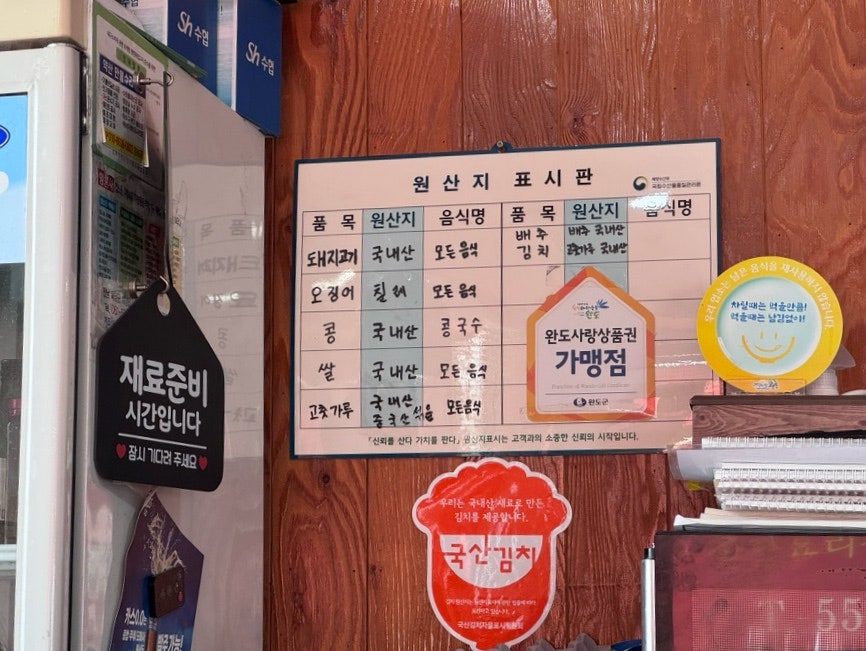 Sh수협
Sh수협
원산지 표시판
국립수산물품질관리원
품목 원산지 음식명 품목 원산지 음식명
돼지고기 국내산 모든음식 배추김치 배추 국내산 고춧가루 국내산
오징어 칠레 모든음식
콩 국내산 콩국수
쌀 국내산 모든음식
고춧가루 국내산 중국산 섞음 모든음식
「신뢰를 산다 가치를 판다」 원산지표시는 고객과의 소중한 신뢰의 시작입니다.
완도사랑상품권
가맹점
완도군
우리 업소는 남은 음식을 재사용하지 않습니다.
차릴때는 먹을만큼!
먹을때는 남김없이!
재료준비
시간입니다
잠시 기다려 주세요
우리는 국내산 재료로 만든
김치를 제공합니다.
국산김치
국산김치자율표시위원회
카스0.0
55